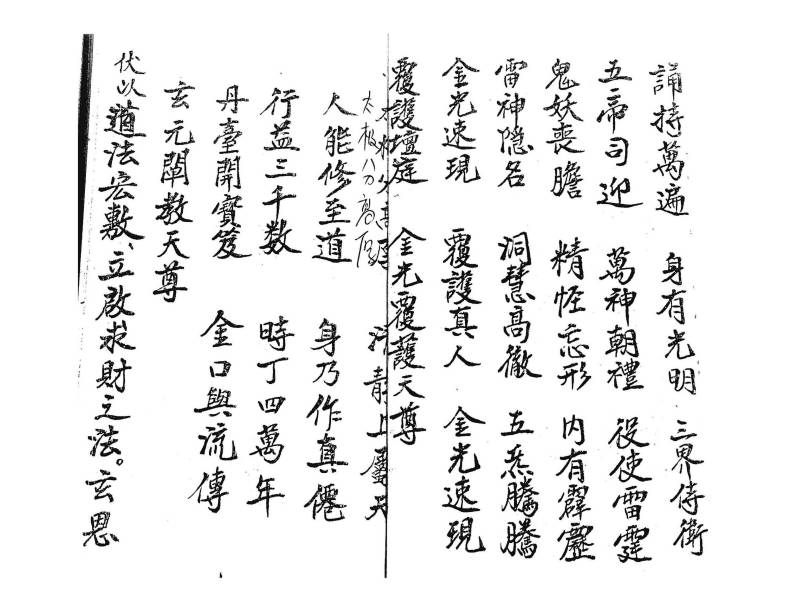 誦持萬遍 身有光明 三界侍衛
五帝司迎 萬神朝禮 役使雷霆
鬼妖喪膽 精怪忘形 內有霹靂
雷神隐名 洞慧高徹 五炁騰騰
金光速現 覆護真人 金光速現
覆護壇庭 金光覆護天尊
上 天
太极
人能修至道 身乃作真僊
行益三千数 時丁四萬年
丹臺開寶笈 金口與流傳
玄元闡教天尊
伏以道法宏敷、立啟求財之法。玄恩